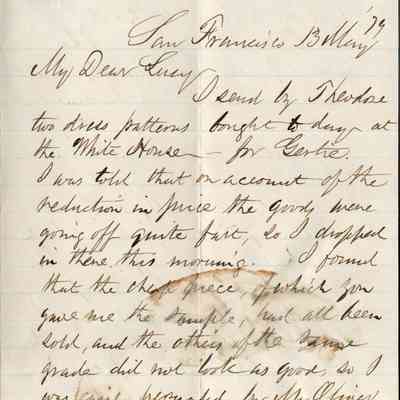 San Francisco 13 May '79
My Dear Lucy
I send by Theodore
two dress patterns bought to day at
the White House — for Gertie.
I was told that on account of the
reduction in price the goods were
going off quite fast, so I dropped
in there this morning. I found
that the cheap piece, of which you
gave me the sample, had all been
sold, and the others of the same
grade did not look as good, so I
was persuaded by Mr Oliver